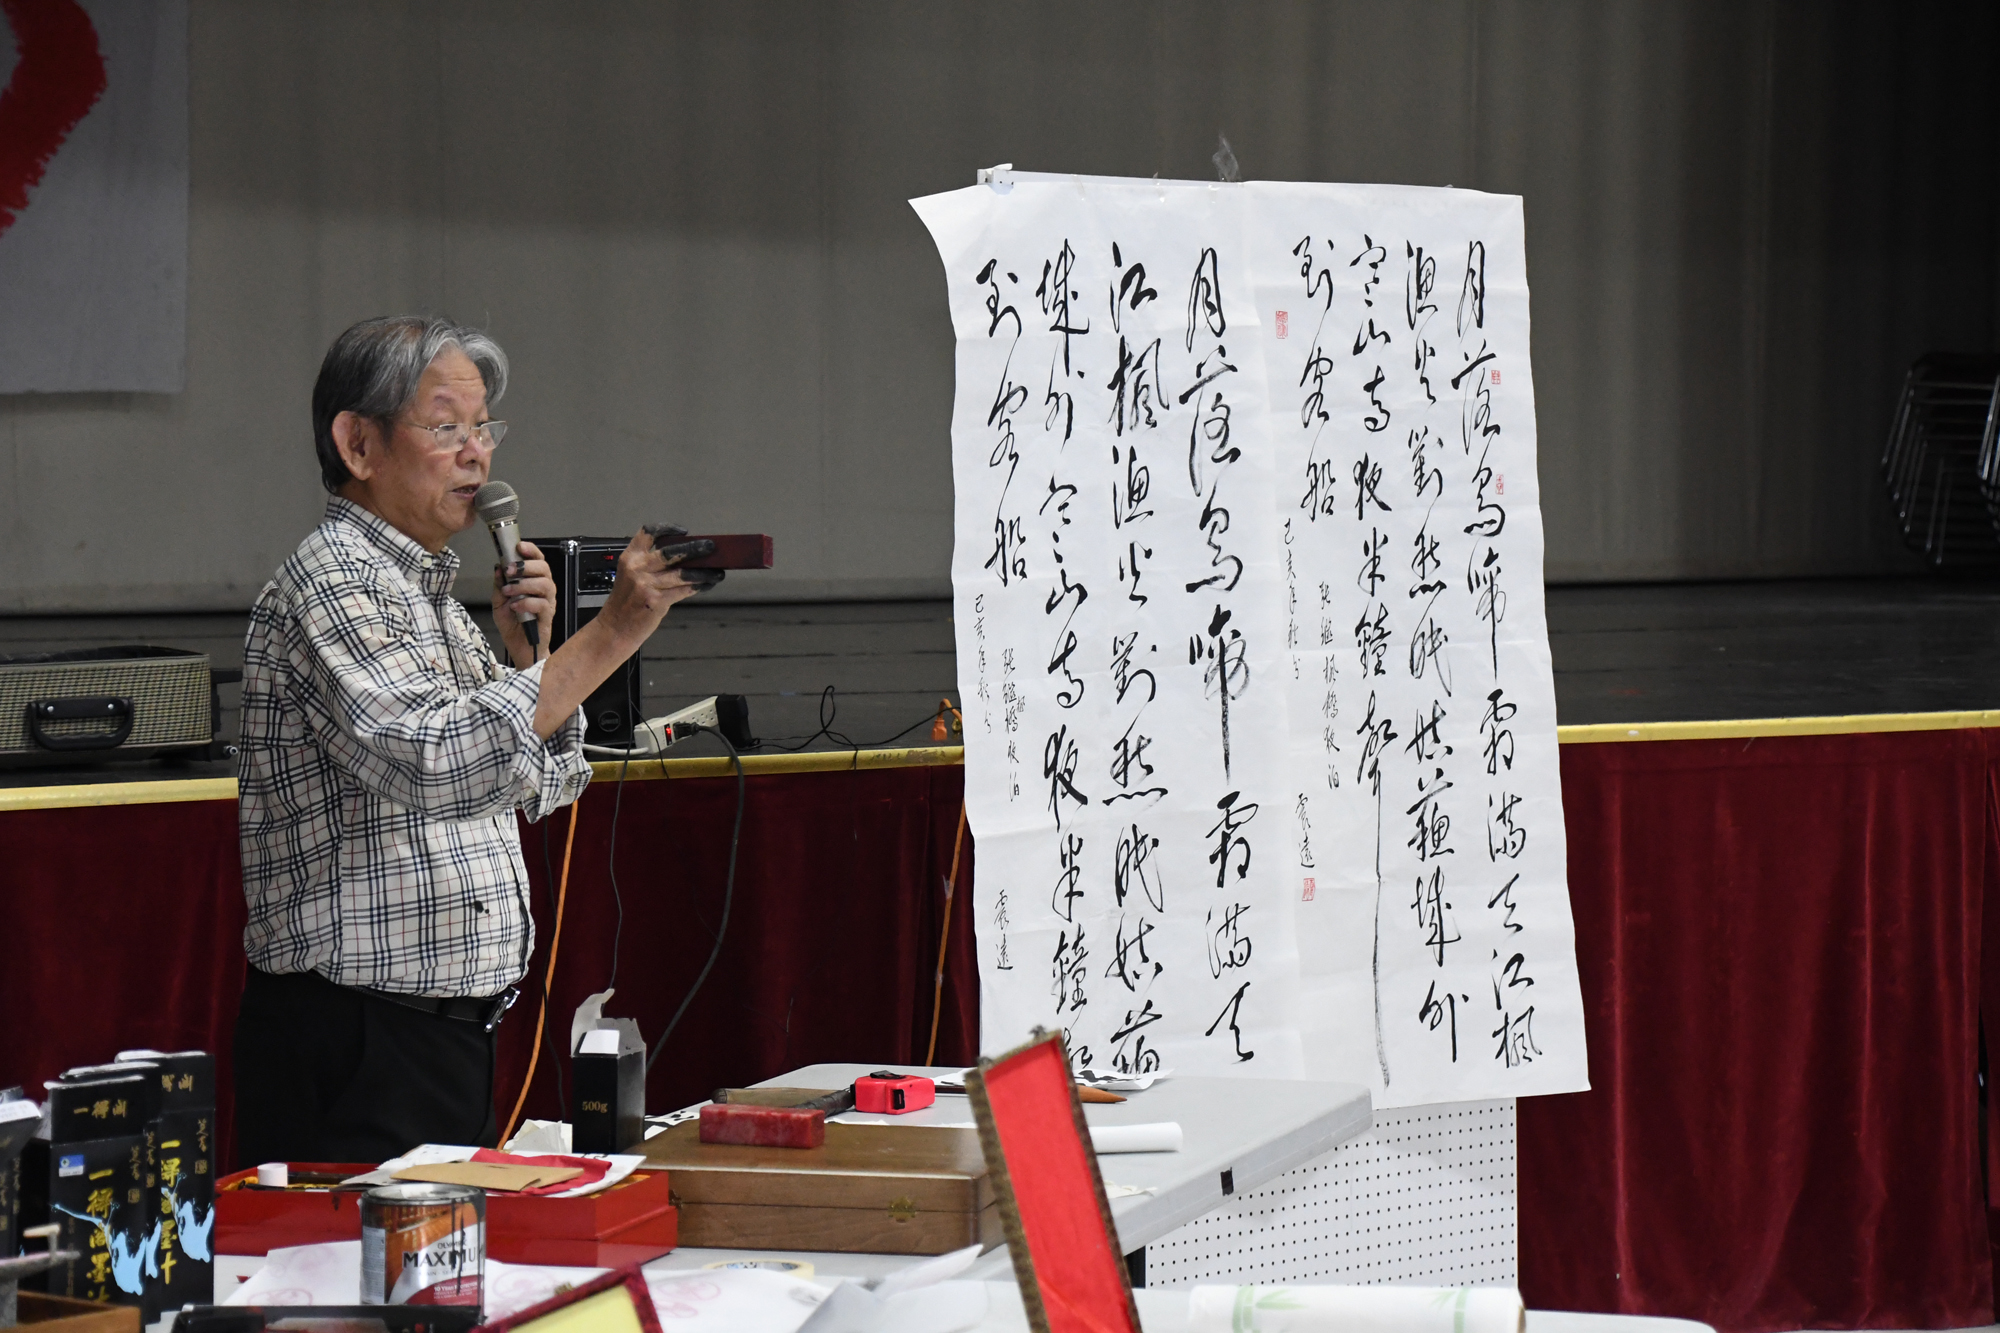 月落烏啼霜滿天江楓
漁火對愁眠姑蘇城外
寒山寺夜半鐘聲
到客船
張繼楓橋夜泊
己亥年秋書
震遠
月落烏啼霜滿天
江楓漁火對愁眠姑蘇
城外寒山寺夜半鐘聲
到客船
張繼楓橋夜泊
己亥年秋書
震遠
500g
一得阁
一得阁墨汁
一得阁墨汁
MAXIMU